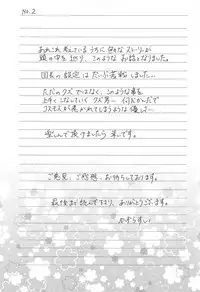 No.2
あれこれ考えているうちに色々なストーリーが
頭の中を巡り、このようなお話になりました。
団長の設定はだいぶ苦戦しました…
ただのクズではなく、このような事を
上手くこなしていくクズ男… 何だかんだで
コスモスが惹かれてしまうような優しさ…
楽しんで頂けましたら幸いです。
ご意見、ご感想、お待ちしております。
最後まで読んで下さり、ありがとうございます。